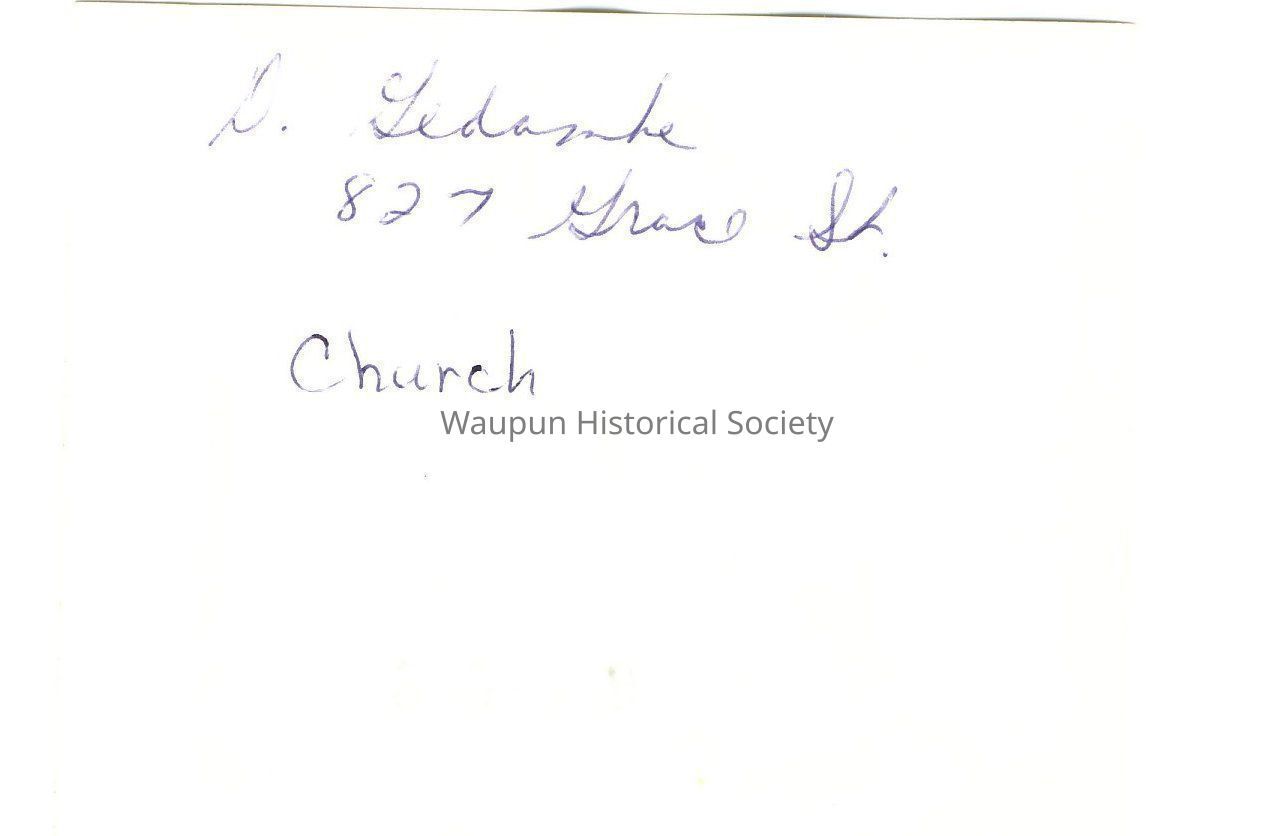 D. Gedamke
827 Grace St.
Church
Waupun Historical Society